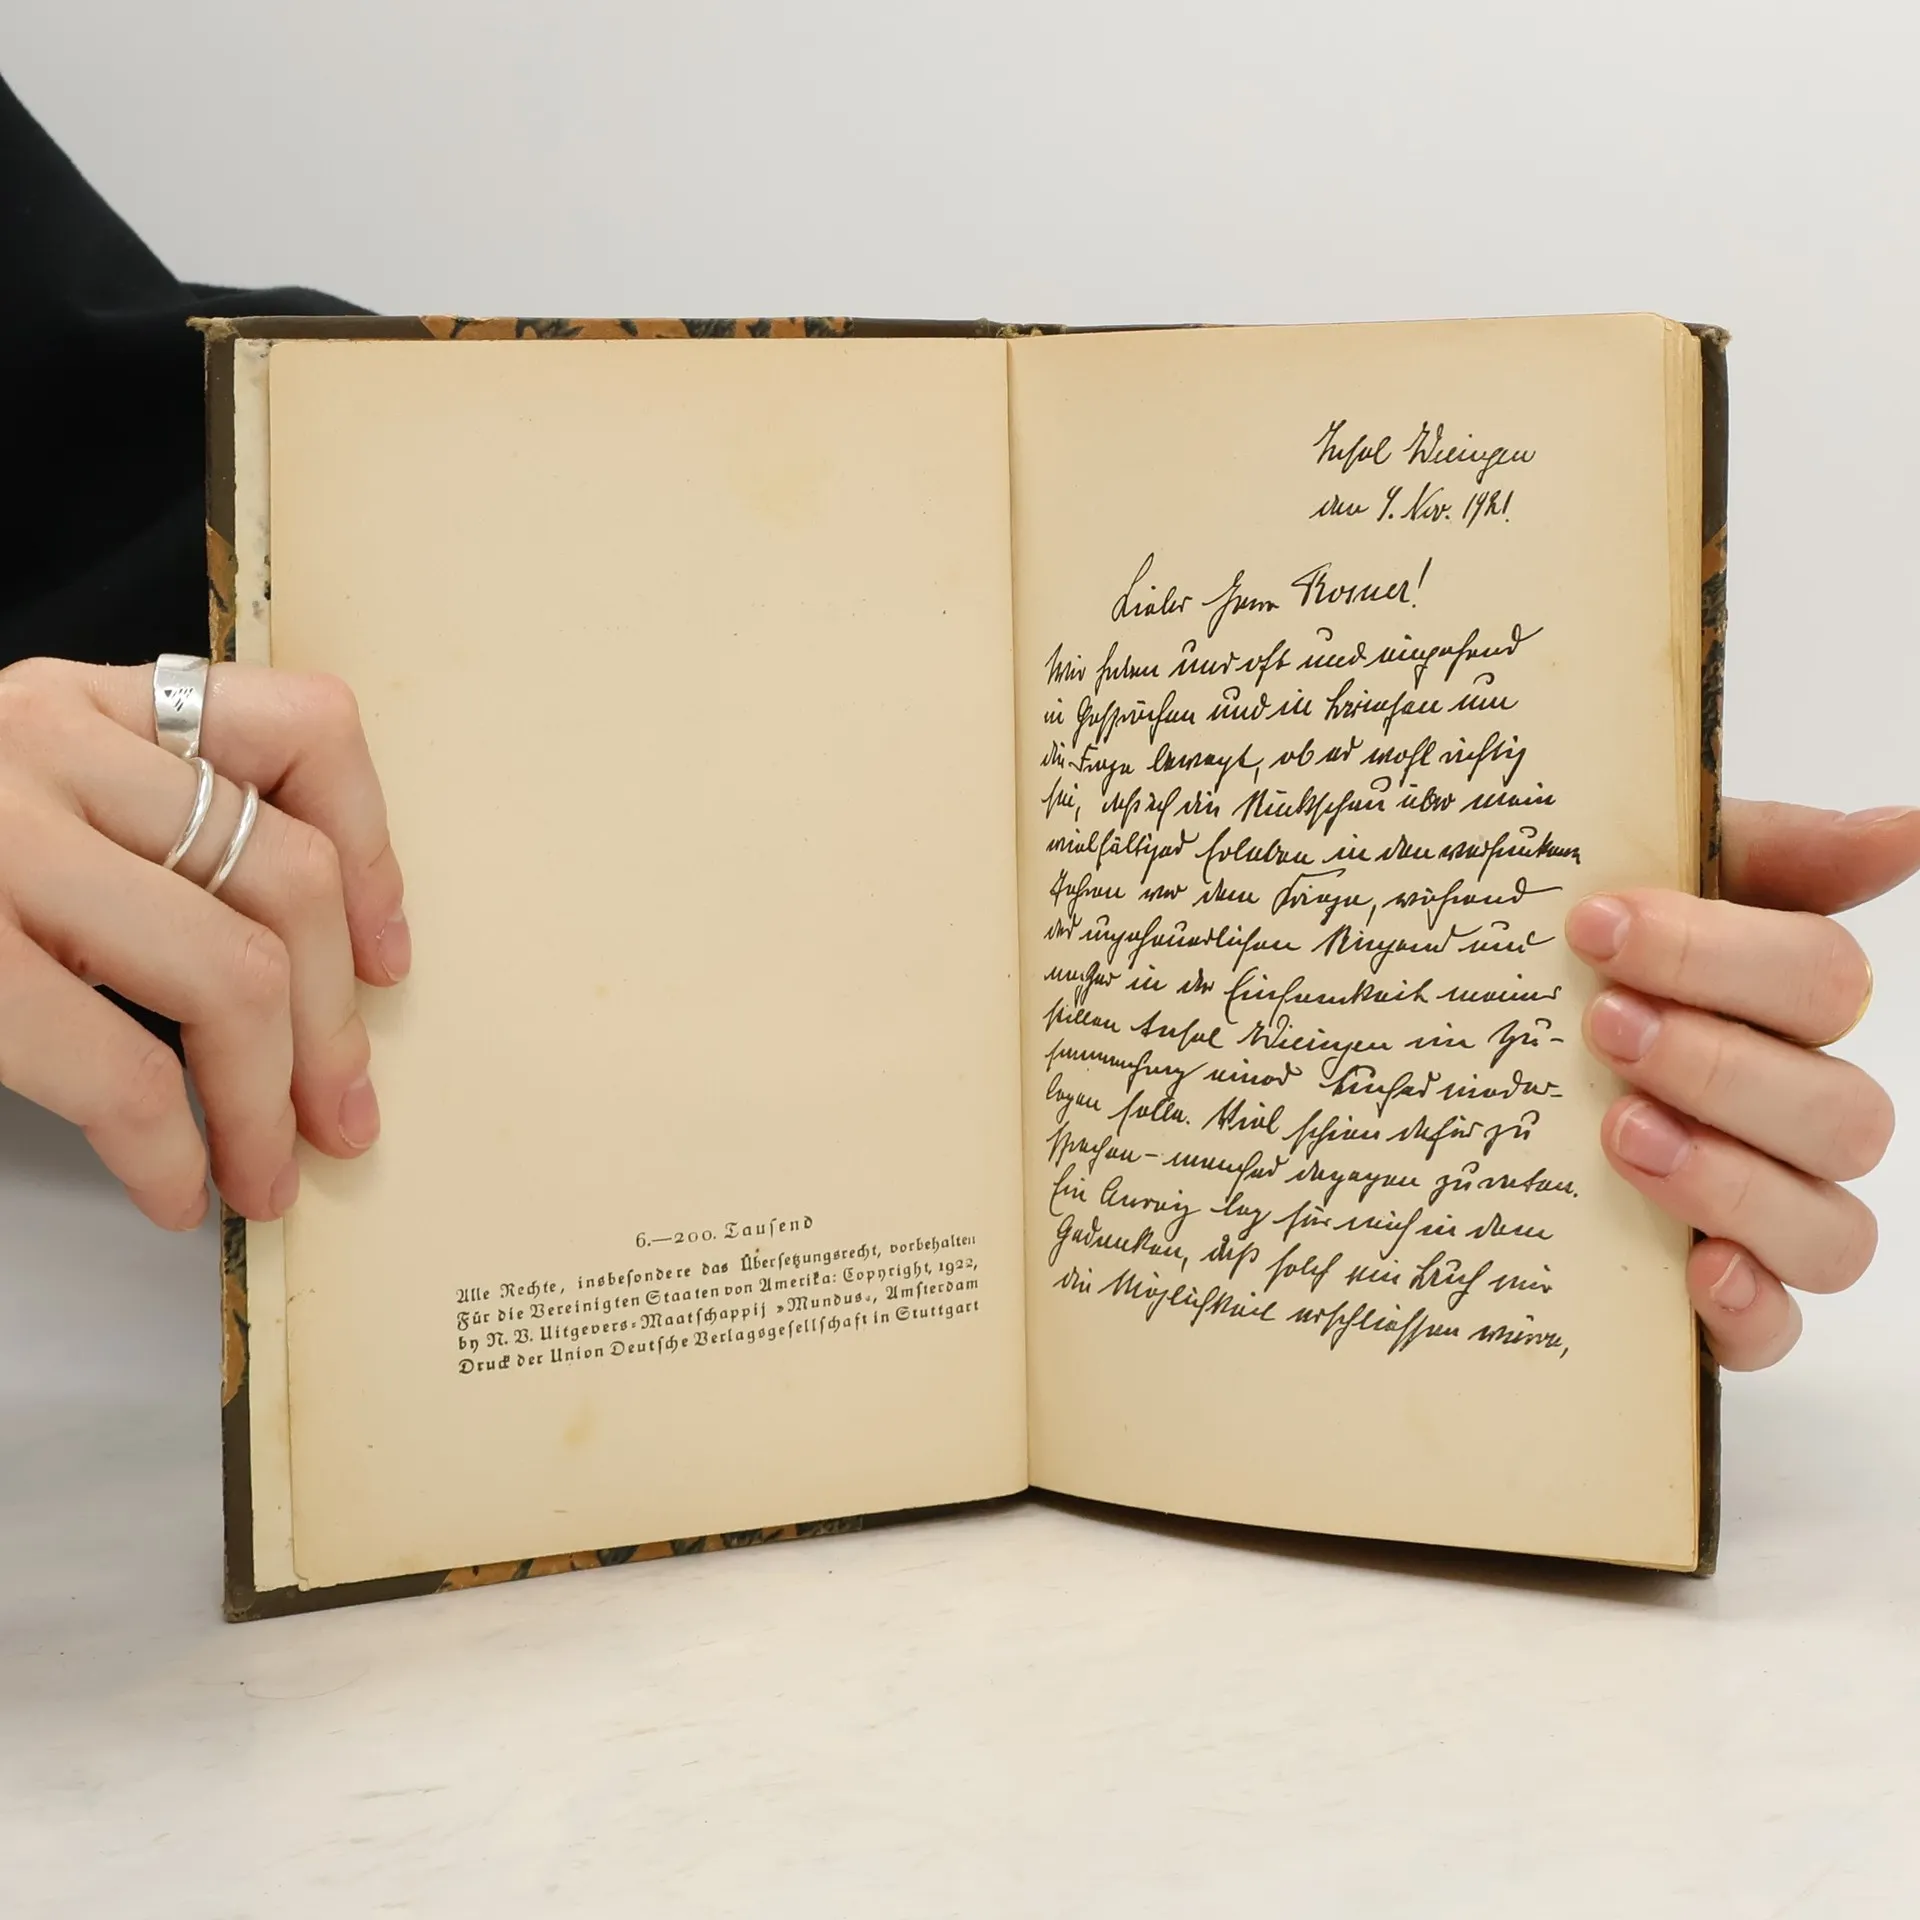 6.—200. Tauſend
Alle Rechte, insbeſondere das Überſetzungsrecht, vorbehalten
Für die Vereinigten Staaten von Amerika: Copyright, 1922,
by N. V. Uitgevers-Maatſchappij »Mundus«, Amſterdam
Druck der Union Deutſche Verlagsgeſellſchaft in Stuttgart
Insel Wieringen
den 4. Nov. 1921.
Lieber Herr Rosner!
Wir haben uns oft und eingehend
in Gesprächen und in Briefen um
die Frage bewegt, ob es wohl richtig
sei, daß ich die Rückschau über mein
vielfältiges Erleben in den versunkenen
Jahren vor dem Kriege, während
des ungeheuerlichen Ringens und
in der Einsamkeit meiner
stillen Insel Wieringen im Zu-
sammenhang eines Buches nieder-
legen solle. Viel schien dafür zu
sprechen – manches dagegen zu raten.
Ein Anreiz lag für mich in dem
Gedanken, daß solch ein Buch mir
die Möglichkeit erschliessen würde,